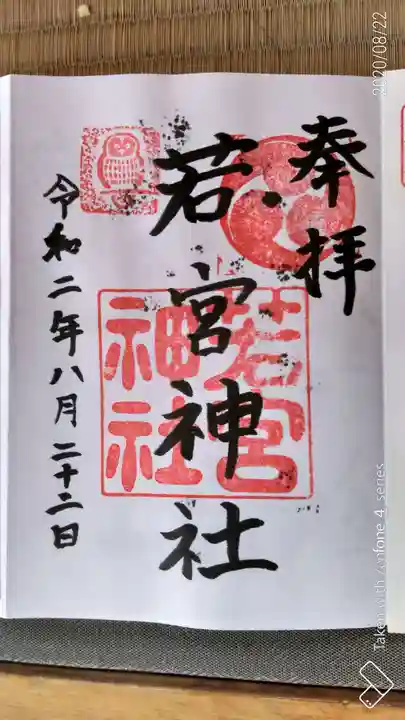 奉拝
若宮神社
令和二年八月二十二日
若宮
神社
2020/08/22
Taken with zenfone 4 series